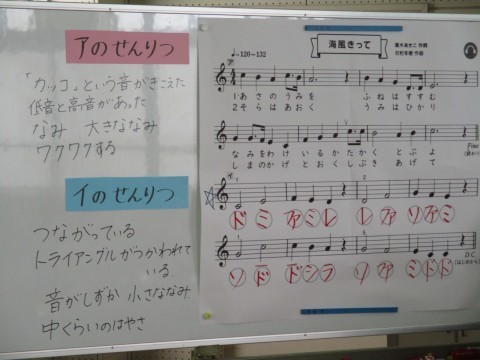 アのせんりつ
「カッコ」という音がきこえた
低音と高音があった
なみ 大きななみ
ワクワクする
イのせんりつ
つながっている
トライアングルがつかわれて
いる
音がしずか 小さななみ
中くらいのはやさ
海風きって
高木あきこ 作詞
作曲
♩=120~132
1あさのうみを ふねはすすむ
2そらはあおく うみはひかり
なみをわけ いるかたかく とぶよ
しまのかげ とおくしぶき あげて
Fine
ド ミ ファミレ レ ファ ソファミ
ソ ド ドシラ ソ ファ ミドド
D.C.
(はじめから)